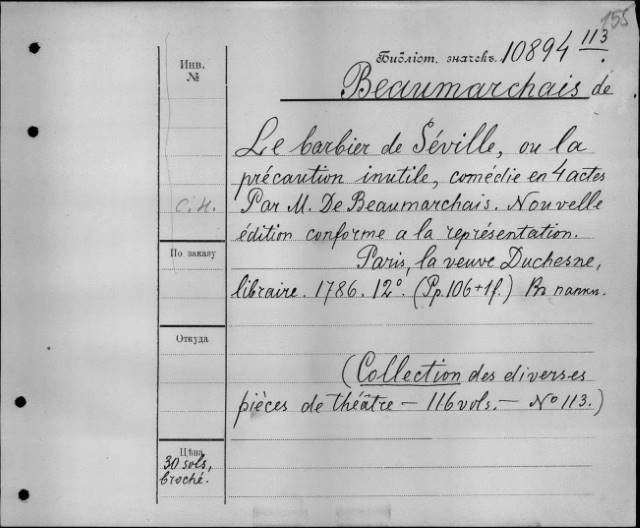 155
Библіот. значекъ. 10894 113.
Инв.
№
Beaumarchais de
Le barbier de Séville, ou la
précaution inutile, comédie en 4 actes
С.Н. Par M. De Beaumarchais. Nouvelle
édition conforme a la représentation.
По заказу
Paris, la veuve Duchesne,
libraire. 1786. 12°. (Pp. 106+1f.) Въ папки.
Откуда
(Collection des diverses
pièces de théâtre — 116 vols. — No 113.)
Цѣна
30 sols,
broché.